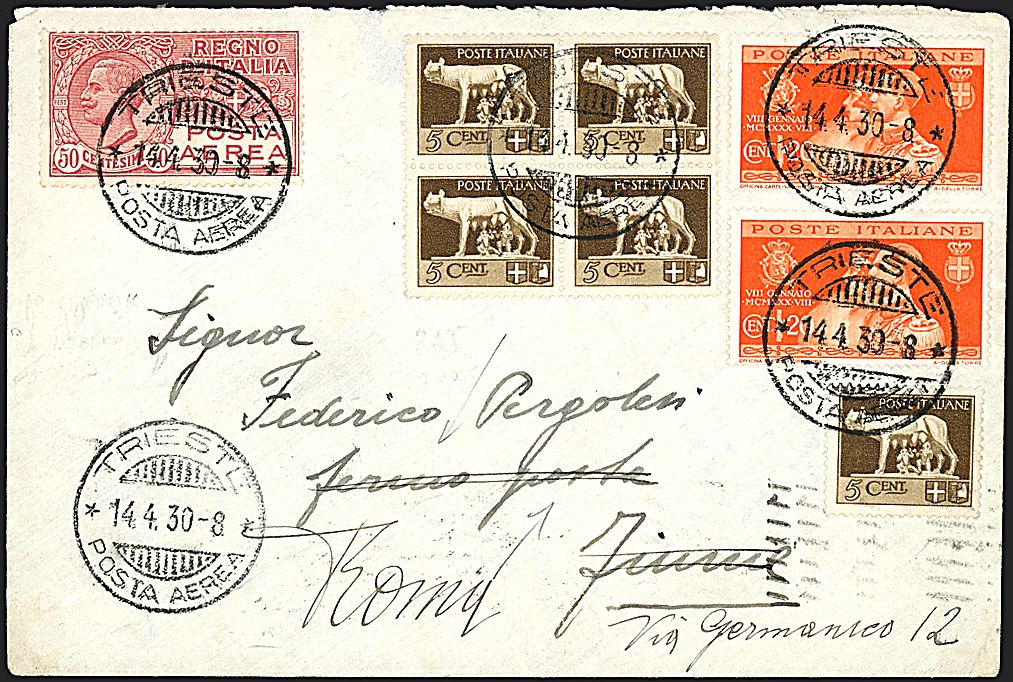 REGNO
D'ITALIA
POSTA
AEREA
50 CENTESIMI 50
TRIESTE
14.4.30-8
POSTA AEREA
POSTE ITALIANE
5 CENT.
POSTE ITALIANE
5 CENT.
POSTE ITALIANE
5 CENT.
POSTE ITALIANE
5 CENT.
TRIESTE
14.4.30-8
POSTA AEREA
POSTE ITALIANE
VIII GENNAIO
MCMXXX·VIII
CENT
TRIESTE
14.4.30-8
POSTA AEREA
POSTE ITALIANE
VIII GENNAIO
MCMXXX·VIII
CENT 20
TRIESTE
14.4.30-8
POSTA AEREA
POSTE ITALIANE
5 CENT.
Signor
Federico Pergolesi
fermo posta
Fiume
Roma
Via Germanico 12
TRIESTE
14.4.30-8
POSTA AEREA